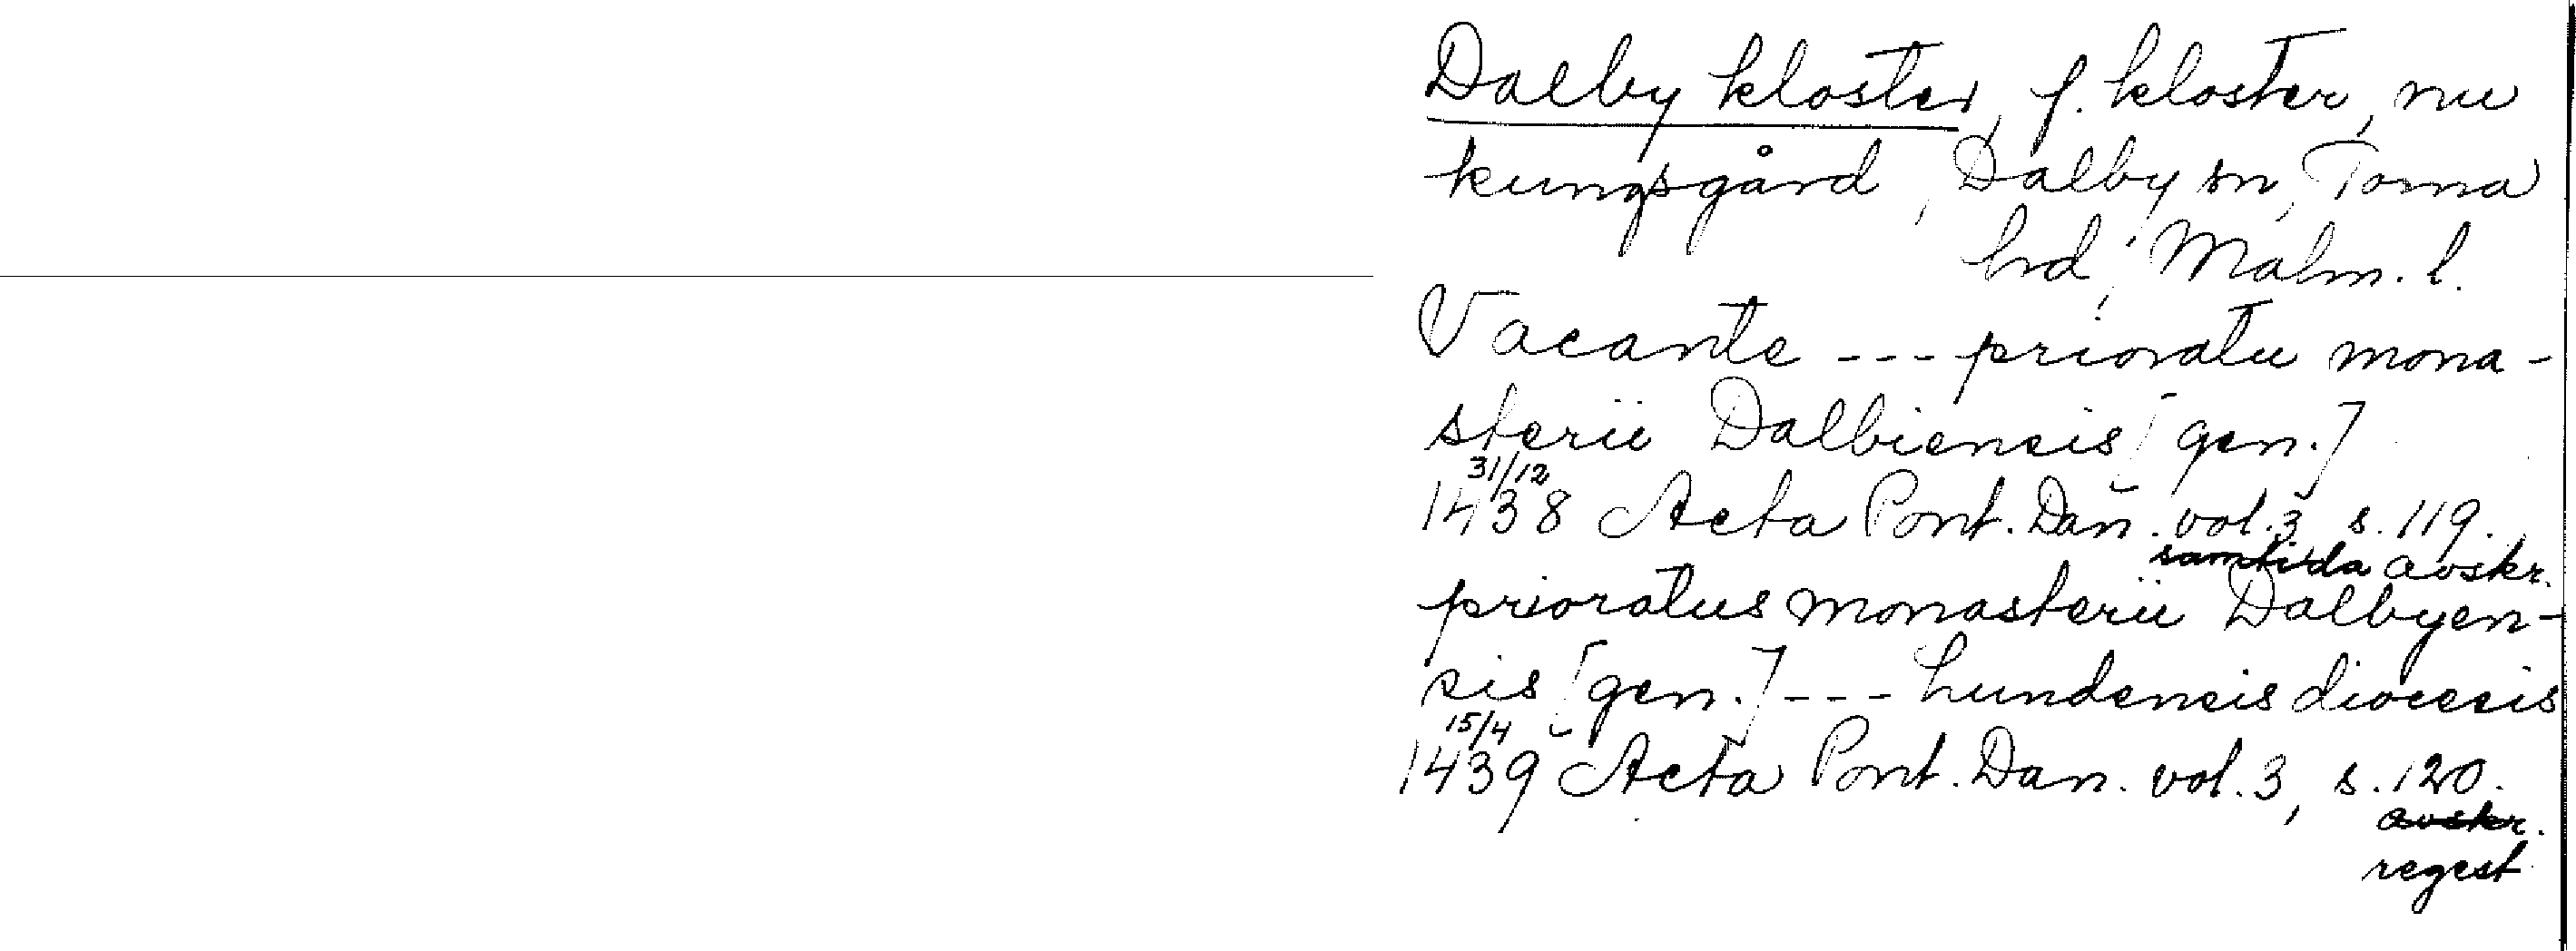 Dalby kloster, f. kloster, nu
kungsgård, Dalby sn, Torna
hd, Malm. l.
Vacante --- prioratu mona-
sterii Dalbiensis [gen.]
31/12
1438 Acta Pont. Dan. vol. 3 s. 119.
samtida avskr.
prioratus monasterii Dalbyen-
sis [gen.] --- Lundensis diocesis
15/4
1439 Acta Pont. Dan. vol. 3, s. 120.
avskr.
regest